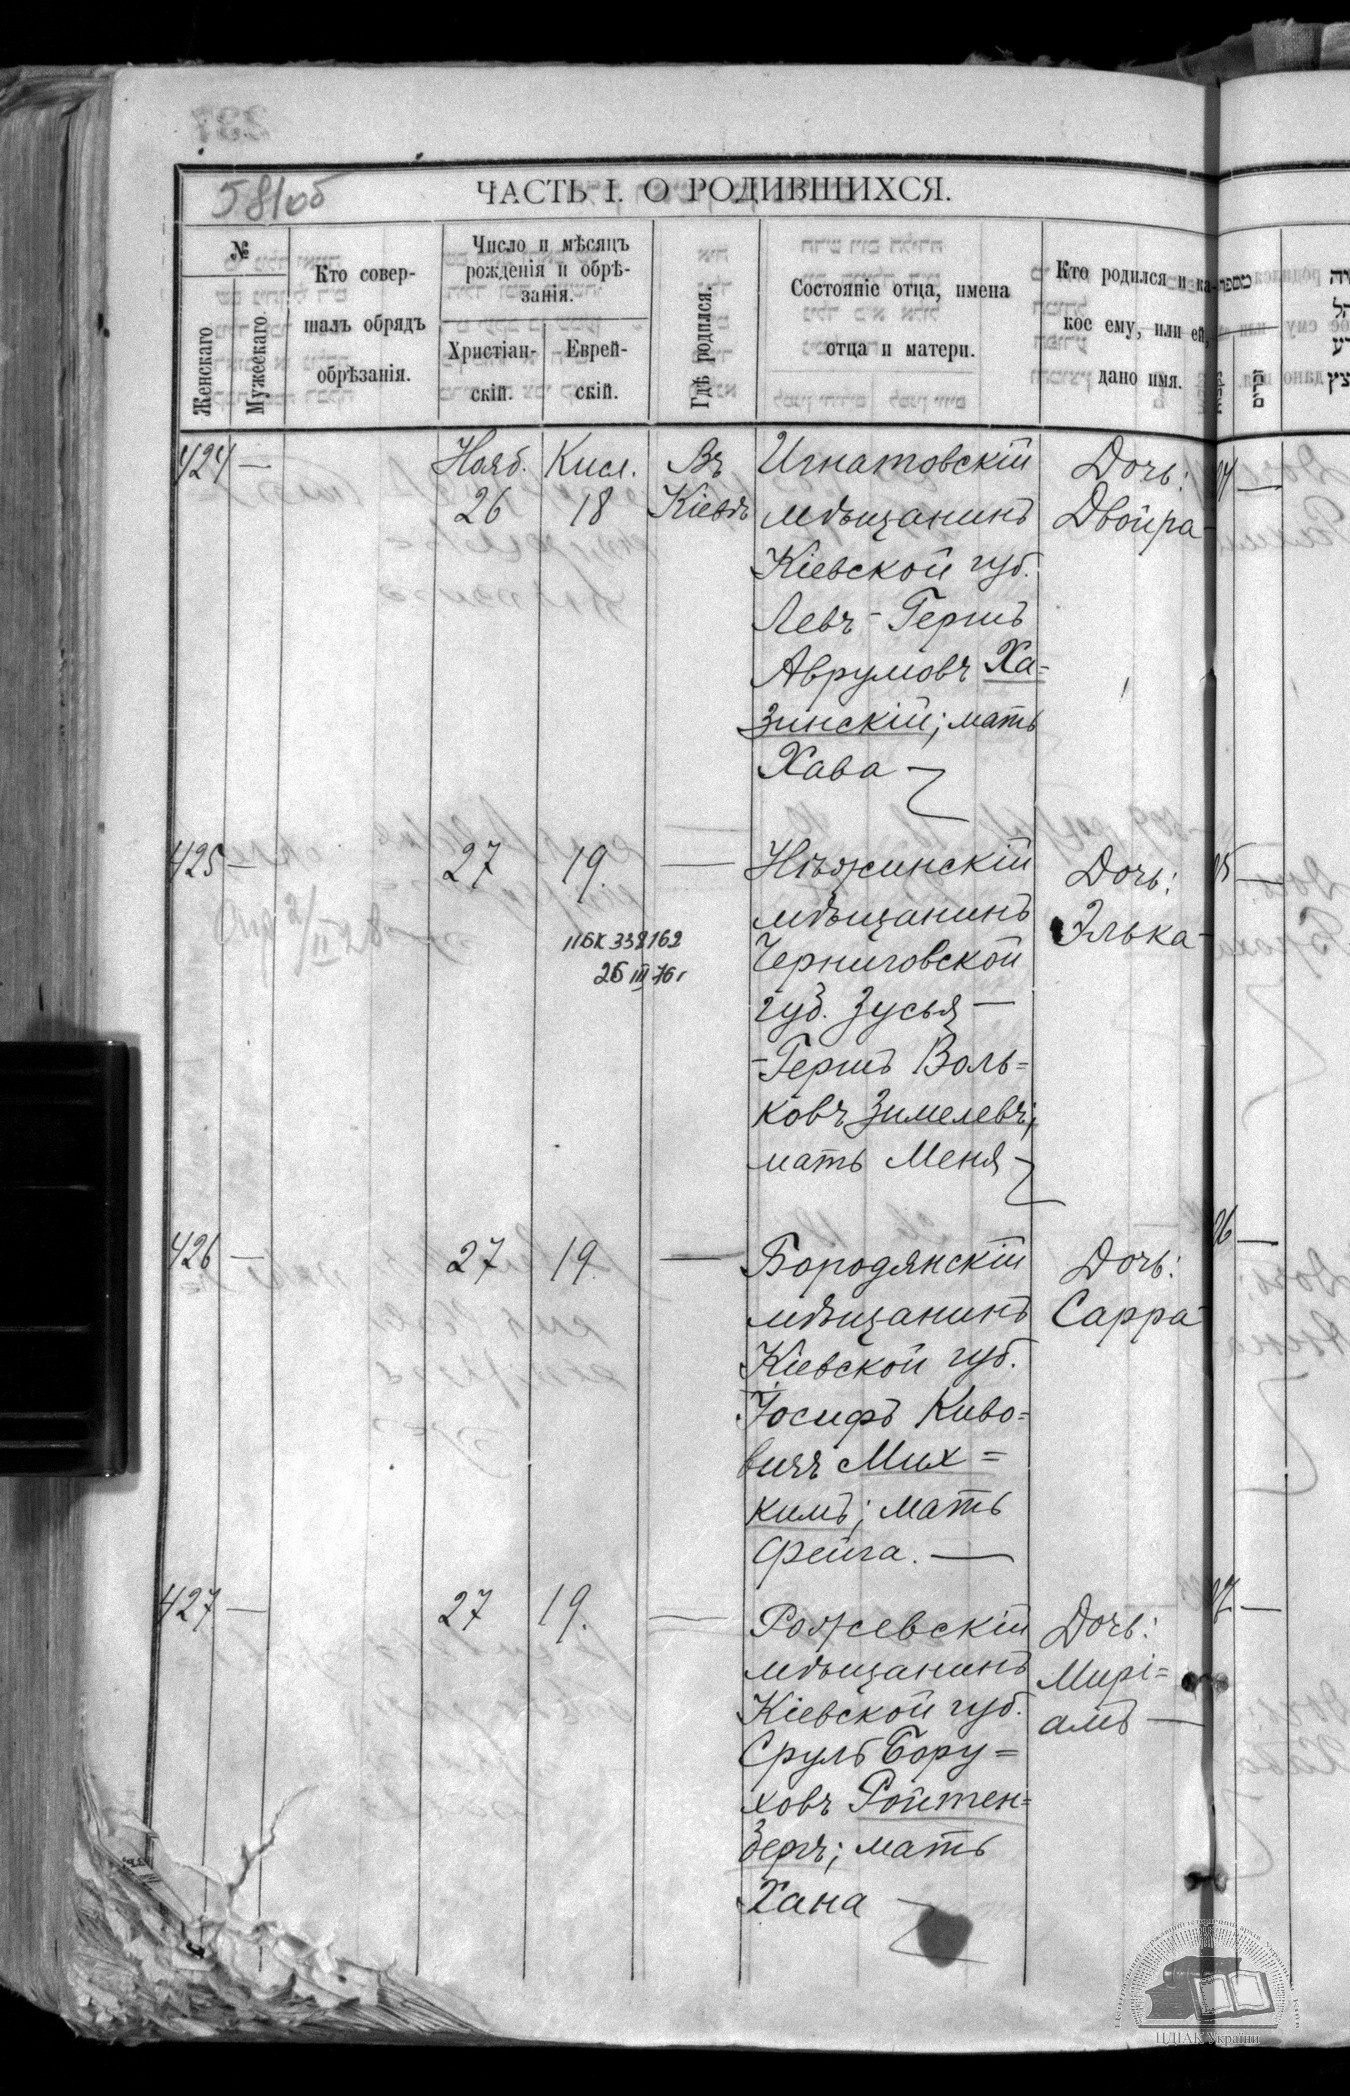 581об
ЧАСТЬ I. О РОДИВШИХСЯ.
№
Женскаго
Мужескаго.
Кто совер-
шалъ обрядъ
обрѣзанія.
Число и мѣсяцъ
рожденія и обрѣ-
занія.
Христіан-
скій.
Еврей-
скій.
Гдѣ родился.
Состояніе отца, имена
отца и матери.
Кто родился и ка-
кое ему, или ей,
дано имя.
424 —
Нояб.
26
Кисл.
18
Въ
Кіевѣ
Игнатовскій
мѣщанинъ
Кіевской губ.
Левъ-Гершъ
Аврумовъ Ха=
зинскій; мать
Хава —
Дочь:
Двойра
425 —
27
19.
—
ІІБК 332162
25 III 76 г
Нѣжинскій
мѣщанинъ
Черниговской
губ. Зусья —
-Гершъ Воль=
ковъ Зимелевъ;
мать Меня —
Дочь:
Элька
426 —
27
19.
—
Бородянскій
мѣщанинъ
Кіевской губ.
Іосифъ Киво=
вичъ Мих=
кимъ; мать
Фейга. —
Дочь:
Сарра
427 —
27
19.
—
Рожевскій
мѣщанинъ
Кіевской губ.
Сруль Бору=
ховъ Ройтен=
бергъ; мать
Хана —
Дочь:
Мирі=
амъ —
ЦДІАК України